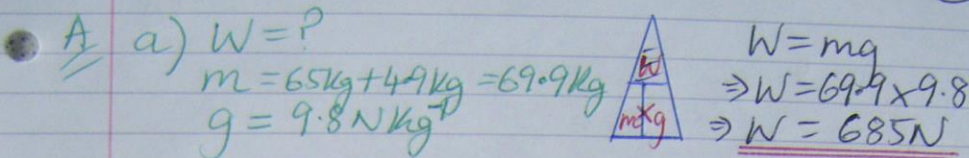 A a) W = ?
m = 65kg + 4.9kg = 69.9kg
g = 9.8 N kg⁻¹
W
m × g
W = mg
⇒ W = 69.9 × 9.8
⇒ W = 685N